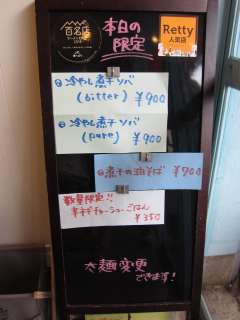 百名店
本日の
限定
Retty
人気店
冷やし煮干ソバ
(bitter) ¥900
冷やし煮干ソバ
(pure) ¥900
煮干の油そば ¥900
数量限定!!
辛チヂチャーシューごはん
¥350
太麺変更
できます!